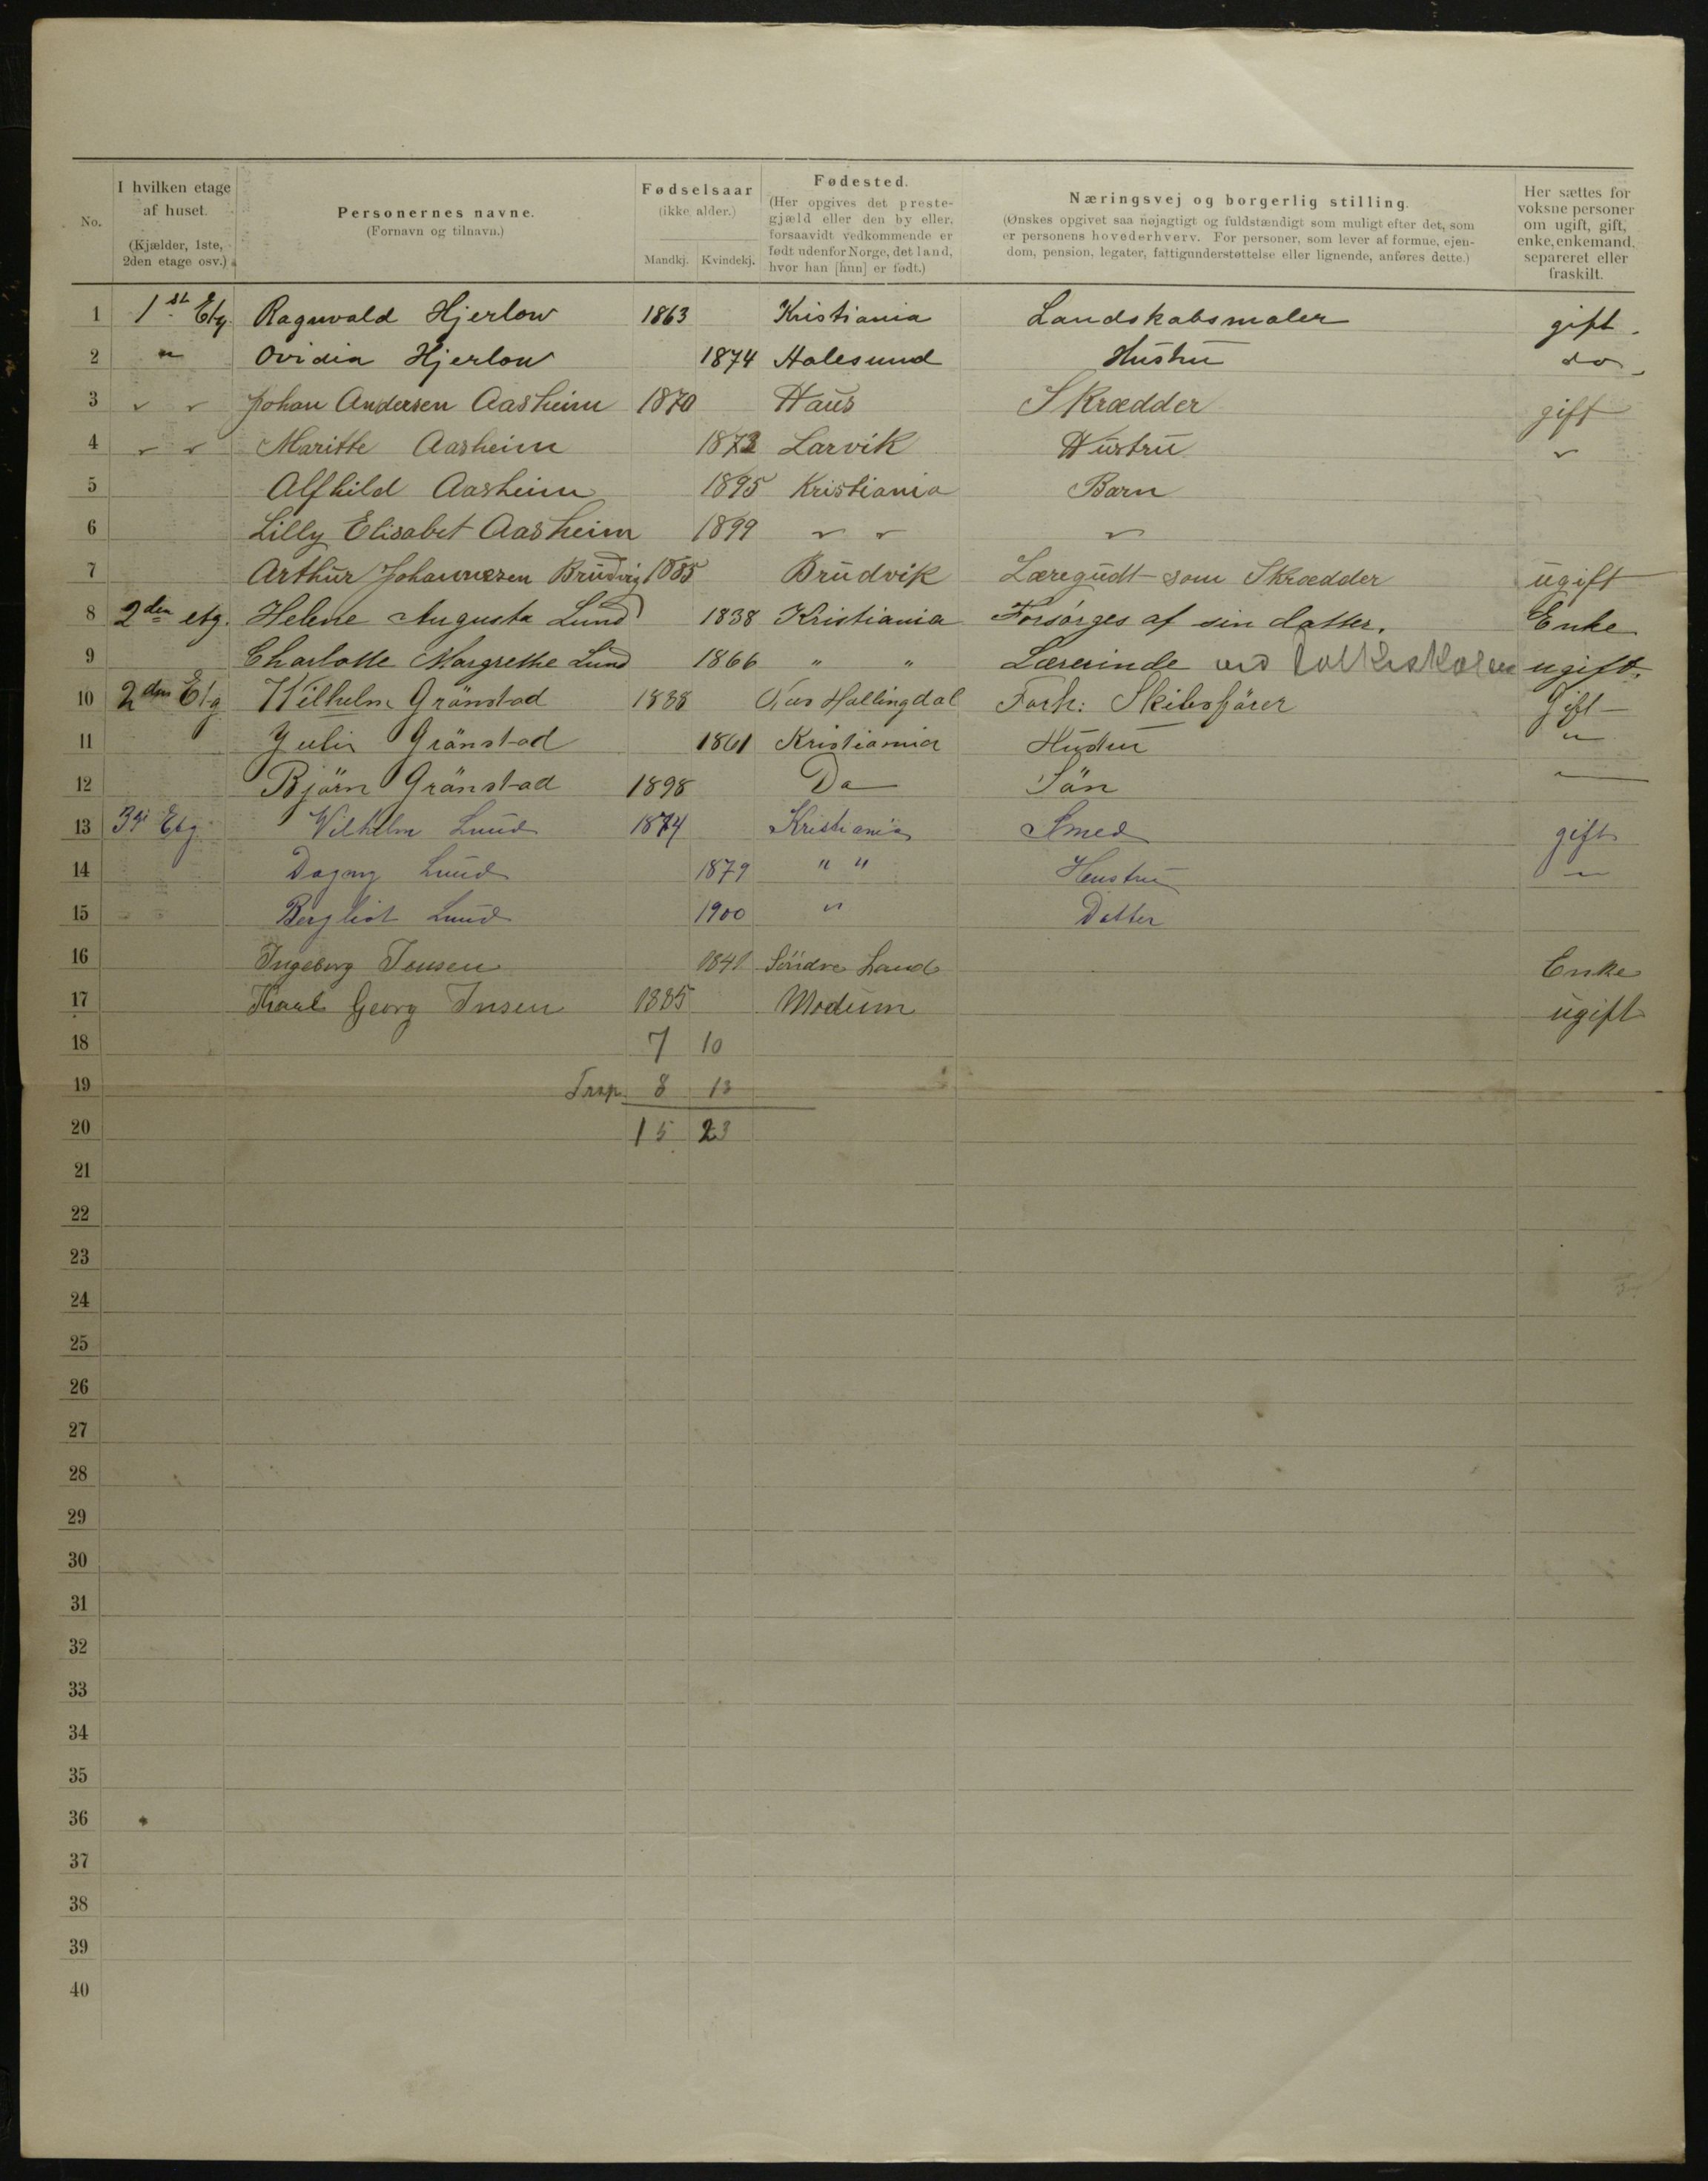 No.
I hvilken etage
af huset.
(Kjælder, 1ste,
2den etage osv.)
Personernes navne.
(Fornavn og tilnavn.)
Fødselsaar
(ikke alder.)
Mandkj. Kvindekj.
Fødested.
(Her opgives det preste-
gjæld eller den by eller,
forsaavidt vedkommende er
født udenfor Norge, det land,
hvor han [hun] er født.)
Næringsvej og borgerlig stilling.
(Ønskes opgivet saa nøjagtigt og fuldstændigt som muligt efter det, som
er personens hovederhverv. For personer, som lever af formue, ejen-
dom, pension, legater, fattigunderstøttelse eller lignende, anføres dette.)
Her sættes for
voksne personer
om ugift, gift,
enke, enkemand,
separeret eller
fraskilt.
1 1st Etg. Ragnvald Hjerlow 1863 Kristiania Landskabsmaler gift.
2 " Ovidia Hjerlow 1874 Aalesund Hustru do
3 " " Johan Andersen Aasheim 1870 Haus Skrædder gift
4 " " Maritte Aasheim 1872 Larvik Hustru "
5 Alfhild Aasheim 1895 Kristiania Barn
6 Lilly Elisabet Aasheim 1899 " " "
7 Arthur Johannezen Brudvig 1885 Brudvik Læregudt som Skrædder ugift
8 2den etg. Helene Augusta Lund 1838 Kristiania Forsørges af sin datter. Enke
9 Charlotte Margrethe Lund 1866 " " Lærerinde ved folkeskolen ugift.
10 2den Etg Wilhelm Grönstad 1838 Hallingdal Forh: Skibsförer Gift
11 Julie Grönstad 1861 Kristiania Hustru "
12 Björn Grönstad 1898 Do Sön
13 3die Etg. Vilhelm Lund 1874 Kristiania Smed gift
14 Dagny Lund 1879 " " Hustru "
15 Bergliot Lund 1900 " Datter
16 Ingeborg Jensen 1841 Söndre Land Enke
17 Karl Georg Jnsen 1885 Modum ugift
18 7 10
19 Trsp. 8 13
20 15 23
21
22
23
24
25
26
27
28
29
30
31
32
33
34
35
36
37
38
39
40